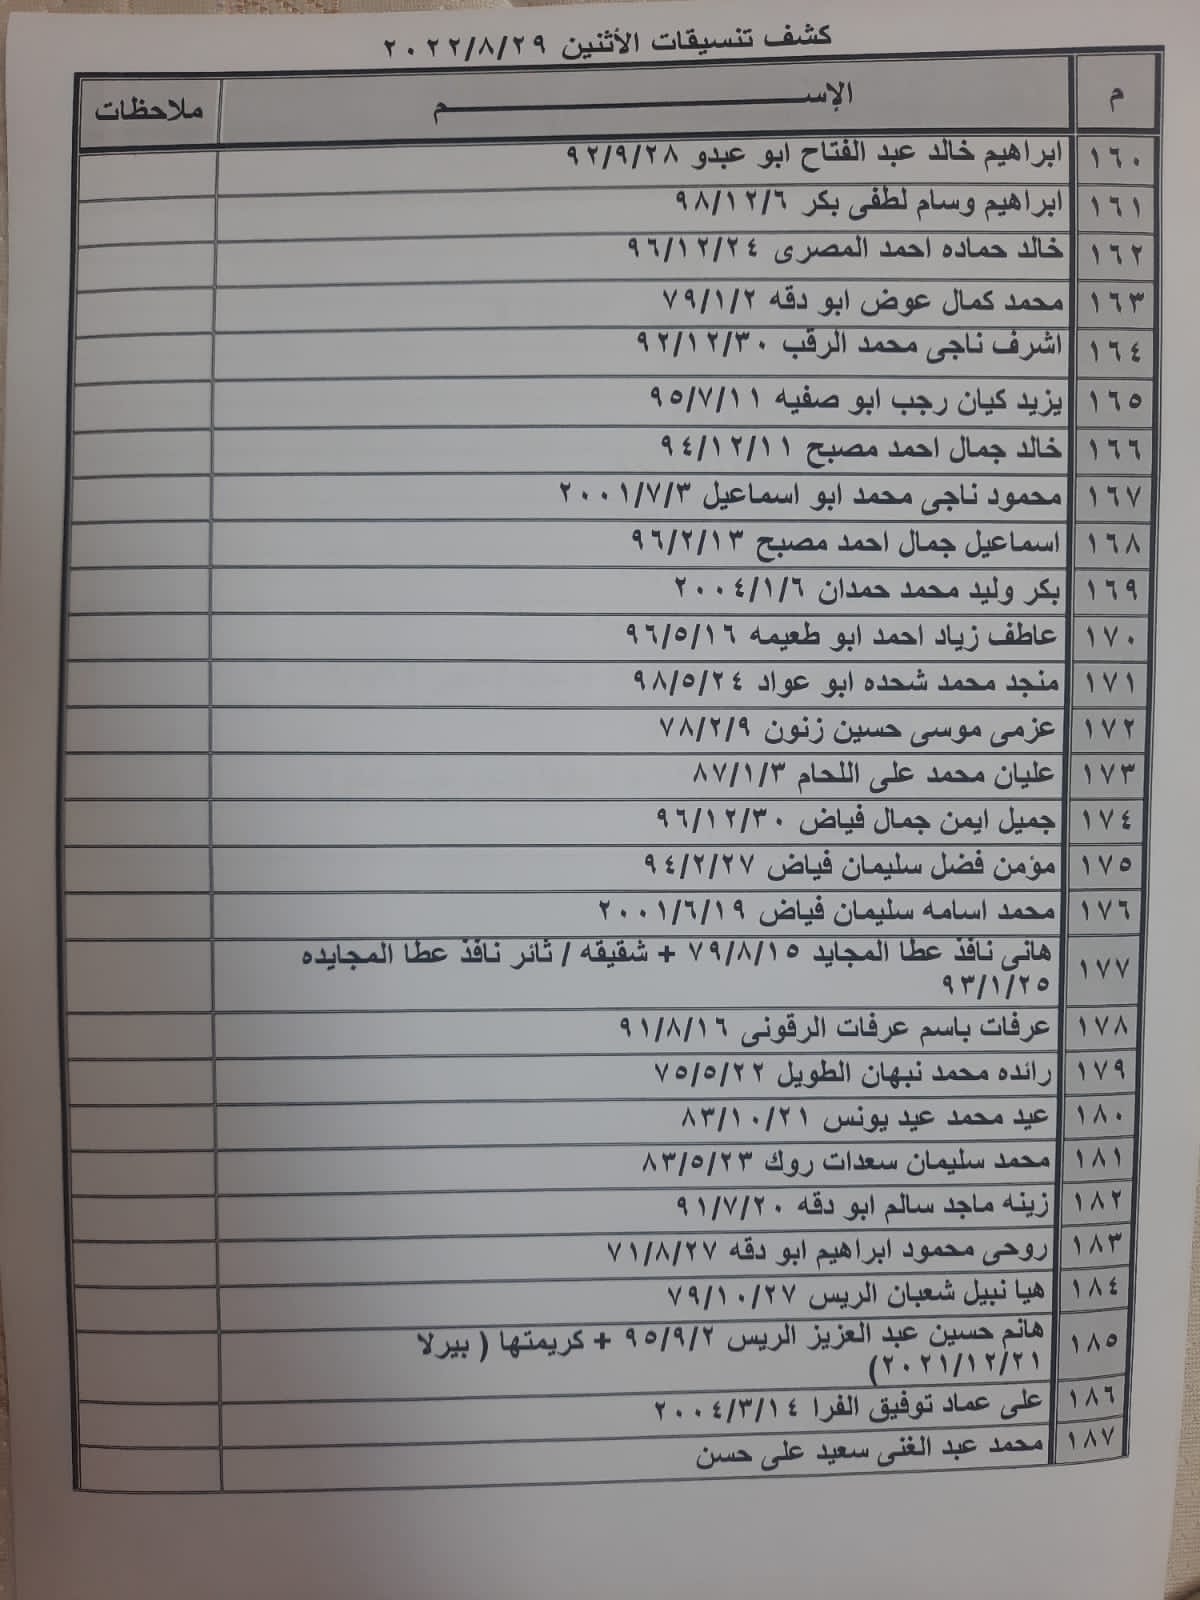 كشف تنسيقات الأثنين ٢٠٢٢/٨/٢٩
م الإســـم ملاحظات
١٦٠ ابراهيم خالد عبد الفتاح ابو عبدو ٩٢/٩/٢٨
١٦١ ابراهيم وسام لطفى بكر ٩٨/١٢/٦
١٦٢ خالد حماده احمد المصرى ٩٦/١٢/٢٤
١٦٣ محمد كمال عوض ابو دقه ٧٩/١/٢
١٦٤ اشرف ناجى محمد الرقب ٩٢/١٢/٣٠
١٦٥ يزيد كيان رجب ابو صفيه ٩٥/٧/١١
١٦٦ خالد جمال احمد مصبح ٩٤/١٢/١١
١٦٧ محمود ناجى محمد ابو اسماعيل ٢٠٠١/٧/٣
١٦٨ اسماعيل جمال احمد مصبح ٩٦/٢/١٣
١٦٩ بكر وليد محمد حمدان ٢٠٠٤/١/٦
١٧٠ عاطف زياد احمد ابو طعيمه ٩٦/٥/١٦
١٧١ منجد محمد شحده ابو عواد ٩٨/٥/٢٤
١٧٢ عزمى موسى حسين زنون ٧٨/٢/٩
١٧٣ عليان محمد على اللحام ٨٧/١/٣
١٧٤ جميل ايمن جمال فياض ٩٦/١٢/٣٠
١٧٥ مؤمن فضل سليمان فياض ٩٤/٢/٢٧
١٧٦ محمد اسامه سليمان فياض ٢٠٠١/٦/١٩
١٧٧ هانى نافذ عطا المجايد ٧٩/٨/١٥ + شقيقه / ثائر نافذ عطا المجايده
٩٣/١/٢٥
١٧٨ عرفات باسم عرفات الرقونى ٩١/٨/١٦
١٧٩ رائده محمد نبهان الطويل ٧٥/٥/٢٢
١٨٠ عيد محمد عيد يونس ٨٣/١٠/٢١
١٨١ محمد سليمان سعدات روك ٨٣/٥/٢٣
١٨٢ زينه ماجد سالم ابو دقه ٩١/٧/٢٠
١٨٣ روحى محمود ابراهيم ابو دقه ٧١/٨/٢٧
١٨٤ هيا نبيل شعبان الريس ٧٩/١٠/٢٧
١٨٥ هانم حسين عبد العزيز الريس ٩٥/٩/٢ + كريمتها ( بيرلا
٢٠٢١/١٢/٢١)
١٨٦ على عماد توفيق الفرا ٢٠٠٤/٣/١٤
١٨٧ محمد عبد الغنى سعيد على حسن